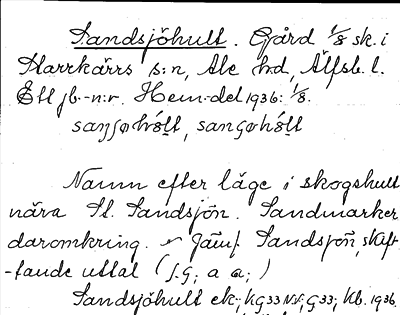 Sandsjöhult. Gård 1/8 sk. i
Harrkärrs s:n, Ale hd, Älfsb. l.
Ett jb.-n:r. Hem.-del 1936: 1/8.
Namn efter läge i skogshult
nära St. Sandsjön. Sandmarker
daromkring. Jämf. Sandsjön, skif-
-tande uttal
Sandsjöhult ek.; KG33 NV; G33; kb. 1936.